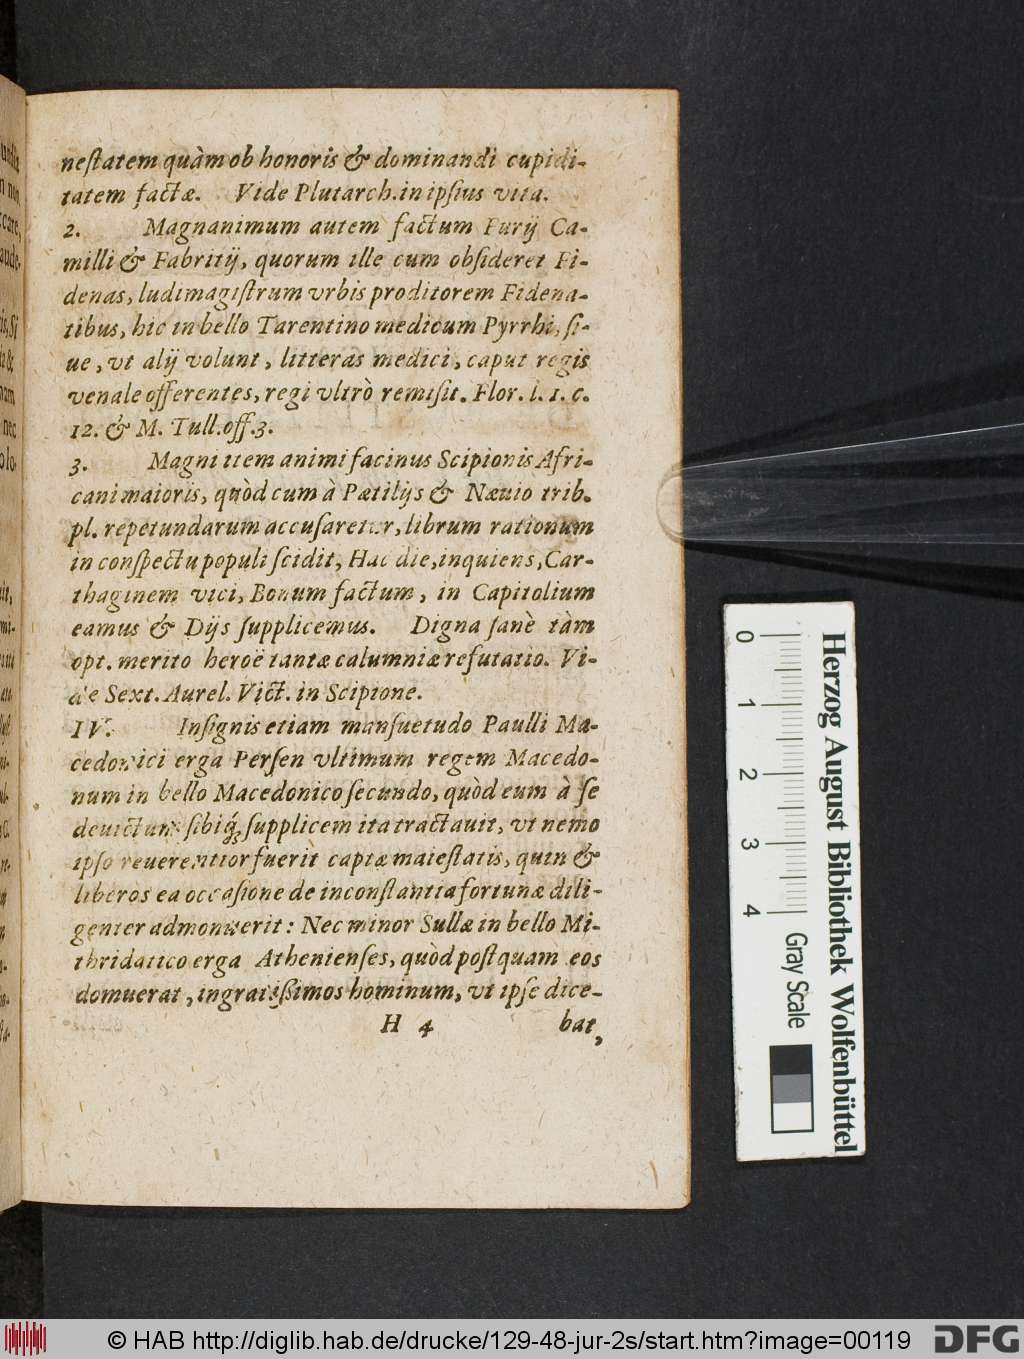 neſtatem quàm ob honoris & dominandi cupidi-
tatem factæ. Vide Plutarch. in ipſius vita.
2. Magnanimum autem factum Furij Ca-
milli & Fabritij, quorum ille cum obſideret Fi-
denas, ludimagiſtrum vrbis proditorem Fidena-
tibus, hic in bello Tarentino medicum Pyrrhi, ſi-
ue, vt alij volunt, litteras medici, caput regis
venale offerentes, regi vltrò remiſit. Flor. l. 1. c.
12. & M. Tull. off. 3.
3. Magni item animi facinus Scipionis Afri-
cani maioris, quòd cum à Pætilijs & Næuio trib.
pl. repetundarum accuſaretur, librum rationum
in conſpectu populi ſcidit, Hac die, inquiens, Car-
thaginem vici, Bonum factum, in Capitolium
eamus & Dijs ſupplicemus. Digna ſanè tàm
opt. merito heroë tantæ calumniæ refutatio. Vi-
de Sext. Aurel. Vict. in Scipione.
IV. Inſignis etiam manſuetudo Paulli Ma-
cedonici erga Perſen vltimum regem Macedo-
num in bello Macedonico ſecundo, quòd eum à ſe
deuictum ſibiq́; ſupplicem ita tractauit, vt nemo
ipſo reuerentior fuerit captæ maieſtatis, quin &
liberos ea occaſione de inconſtantia fortunæ dili-
genter admonuerit: Nec minor Sullæ in bello Mi-
thridatico erga Athenienſes, quòd poſtquam eos
domuerat, ingratißimos hominum, vt ipſe dice-
H 4 bat,
0 1 2 3 4 Gray Scale
Herzog August Bibliothek Wolfenbüttel
© HAB http://diglib.hab.de/drucke/129-48-jur-2s/start.htm?image=00119
DFG